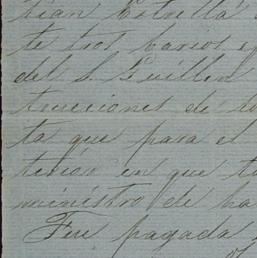 trian Estrella
te tros barcos
del S. Guillen
trucciones de
ta que para el
terior en que
ministro de ha
Fue pagada